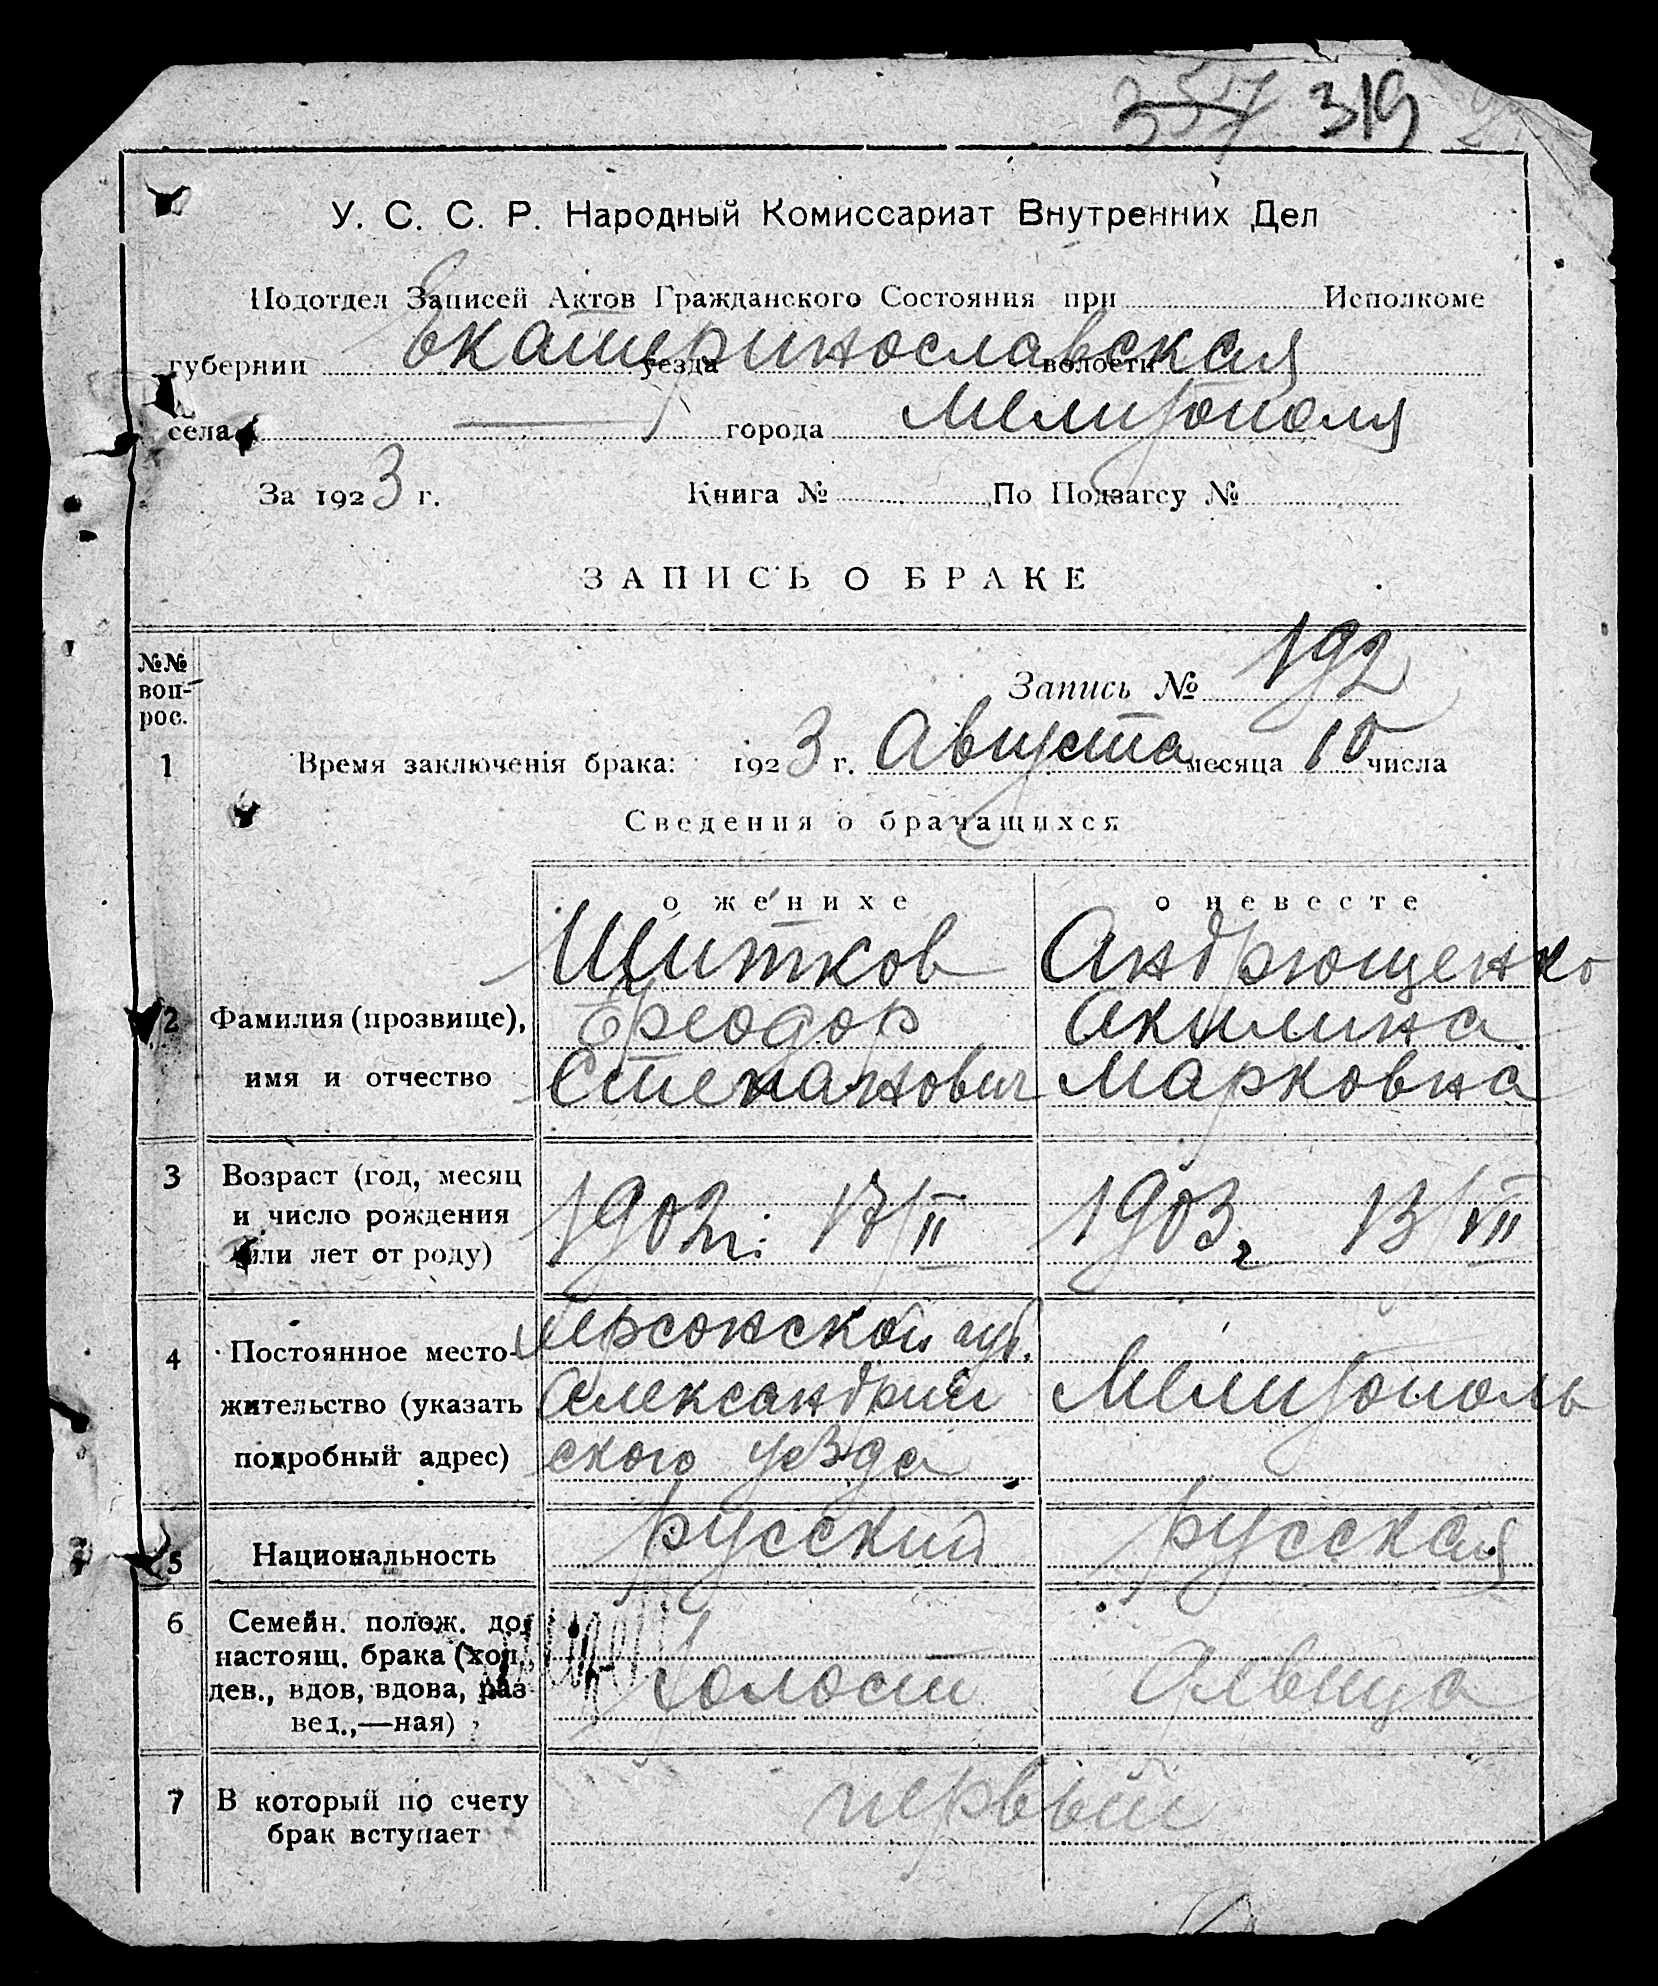 357 319
У. С. С. Р. Народный Комиссариат Внутренних Дел
Подотдел Записей Актов Гражданского Состояния при Исполкоме
губернии Екатеринославская уезда волости
села — города Мелитополя
За 1923 г. Книга № По Подзагсу №
ЗАПИСЬ О БРАКЕ
№№ вопрос.
Запись № 192
1 Время заключенія брака: 1923 г. Августа месяца 10 числа
Сведения о брачащихся
о женихе о невесте
Шитков Андрющенко
2 Фамилия (прозвище), Феодор Акилина
имя и отчество Степанович Марковна
3 Возраст (год, месяц
и число рождения 1902 г. 17/II 1903 г 13/VII
или лет от роду)
Херсонской губ.
4 Постоянное место-
жительство (указать Александрий Мелитополь
подробный адрес) ского уезда
5 Национальность русский русская
6 Семейн. полож. до
настоящ. брака (хол.,
дев., вдов, вдова, раз- холост девица
вед.,—ная)
7 В который по счету первый
брак вступает